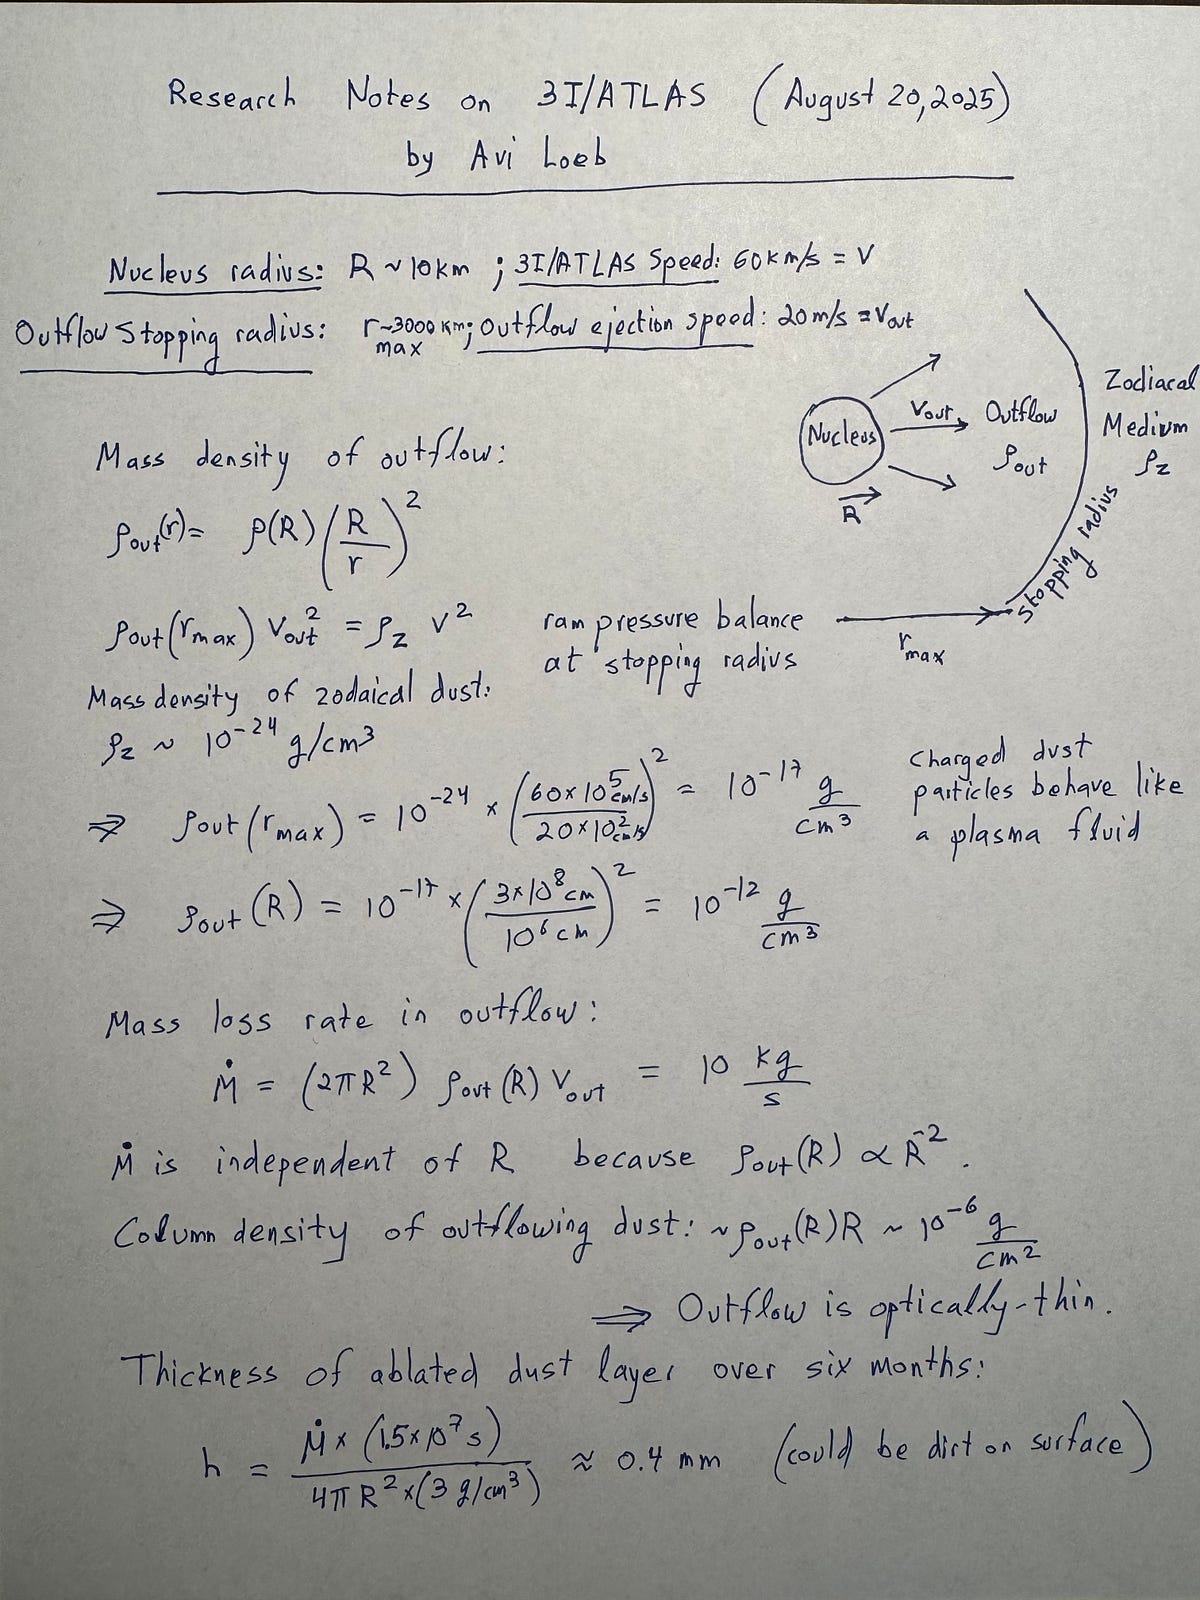 Research Notes on 3I/ATLAS (August 20, 2025)
by Avi Loeb
Nucleus radius: R ~ 10 km ; 3I/ATLAS Speed: 60 km/s = V
Outflow Stopping radius: r_max ~ 3000 km; Outflow ejection speed: 20 m/s = V_out
Nucleus
R
V_out
Outflow
ρ_out
Zodiacal
Medium
ρ_z
stopping radius
r_max
Mass density of outflow:
ρ_out(r) = ρ(R) (R/r)^2
ρ_out(r_max) V_out^2 = ρ_z V^2
ram pressure balance
at stopping radius
Mass density of zodaical dust:
ρ_z ~ 10^-24 g/cm^3
⇒ ρ_out(r_max) = 10^-24 × (60×10^5 cm/s / 20×10^2 cm/s)^2 = 10^-17 g/cm^3
charged dust
particles behave like
a plasma fluid
⇒ ρ_out(R) = 10^-17 × (3×10^8 cm / 10^6 cm)^2 = 10^-12 g/cm^3
Mass loss rate in outflow:
Ṁ = (2πR^2) ρ_out(R) V_out = 10 kg/s
Ṁ is independent of R because ρ_out(R) ∝ R^-2.
Column density of outflowing dust: ~ρ_out(R)R ~ 10^-6 g/cm^2
⇒ Outflow is optically-thin.
Thickness of ablated dust layer over six months:
h = Ṁ × (1.5×10^7 s) / 4πR^2×(3 g/cm^3) ≈ 0.4 mm (could be dirt on surface)